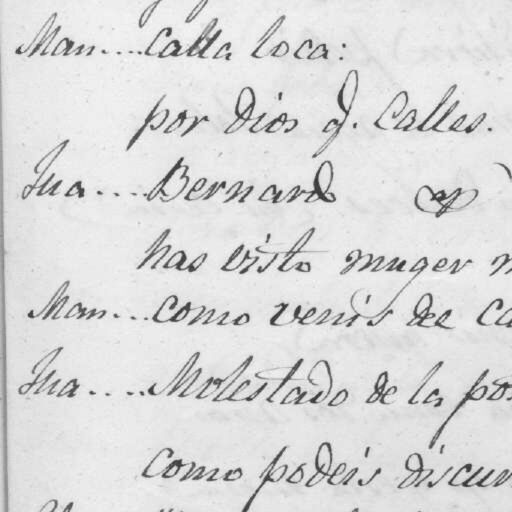 Man.... Calla loca:
por Dios q. Calles.
Jua.... Bernardo
has visto muger
Man... como venis de
Jua..... Molestado de la
como podeis